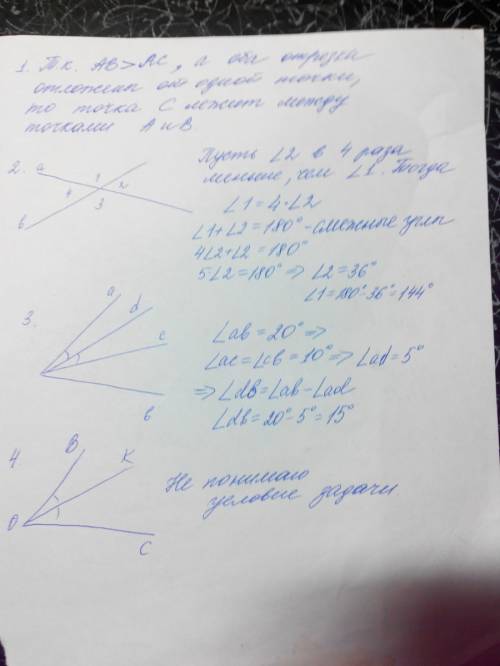 1. Т.к. AB>AC, а оба отрезка
отложены от одной точки,
то точка C лежит между
точками A и B
2. a 1 2 3 4 b
Пусть ∠2 в 4 раза
меньше, чем ∠1. Тогда
∠1=4·∠2
∠1+∠2=180°-смежные углы
4∠2+∠2=180°
5∠2=180°⇒ ∠2=36°
∠1=180°-36°=144°
3. a d c b
∠ab=20°⇒
∠ac=∠cb=10°⇒∠ad=5°
⇒∠db=∠ab-∠ad
∠db=20°-5°=15°
4 B K O C
Не понимаю
условие задачи.